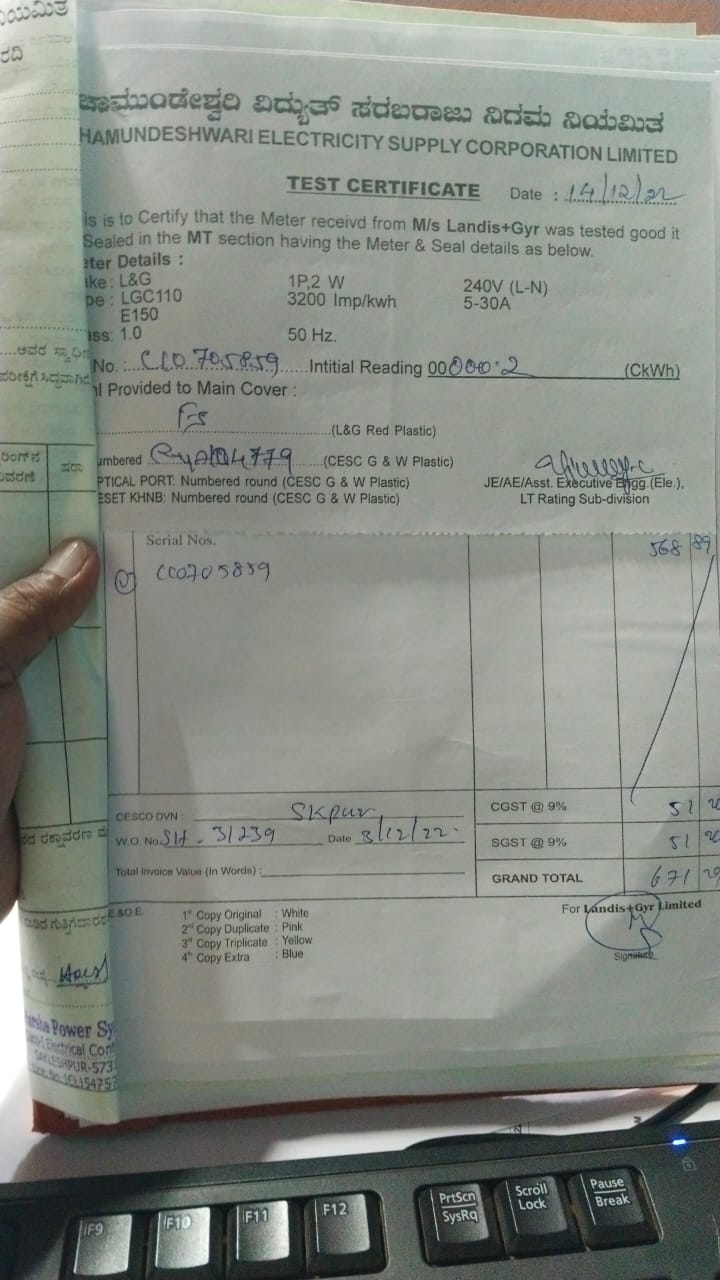 ಚಾಮುಂಡೇಶ್ವರಿ ವಿದ್ಯುತ್ ಸರಬರಾಜು ನಿಗಮ ನಿಯಮಿತ
HAMUNDESHWARI ELECTRICITY SUPPLY CORPORATION LIMITED
TEST CERTIFICATE Date : 14/12/22
is is to Certify that the Meter receivd from M/s Landis+Gyr was tested good it
Sealed in the MT section having the Meter & Seal details as below.
eter Details :
ke : L&G 1P,2 W 240V (L-N)
pe : LGC110 3200 Imp/kwh 5-30A
E150
ss: 1.0 50 Hz.
No. : CC0705859 Intitial Reading 00000.2 (CkWh)
l Provided to Main Cover :
(L&G Red Plastic)
umbered (CESC G & W Plastic)
PTICAL PORT: Numbered round (CESC G & W Plastic) JE/AE/Asst. Executive Engg.(Ele.),
ESET KHNB: Numbered round (CESC G & W Plastic) LT Rating Sub-division
Serial Nos. 568 89
CC0705859
CESCO DVN : SKpur CGST @ 9% 51 20
W.O. No. SH-31239 Date 3/12/22 SGST @ 9% 51 20
Total Invoice Value (In Words) : GRAND TOTAL 671 29
E.&O.E.
1st Copy Original : White
2nd Copy Duplicate : Pink
3rd Copy Triplicate : Yellow
4th Copy Extra : Blue
For Landis+Gyr Limited
Signature
ಪರೀಕ್ಷೆಗೆ ಸಿದ್ಧವಾಗಿದೆ
Power Sy
Electrical Cont
F9 F10 F11 F12 PrtScn SysRq Scroll Lock Pause Break